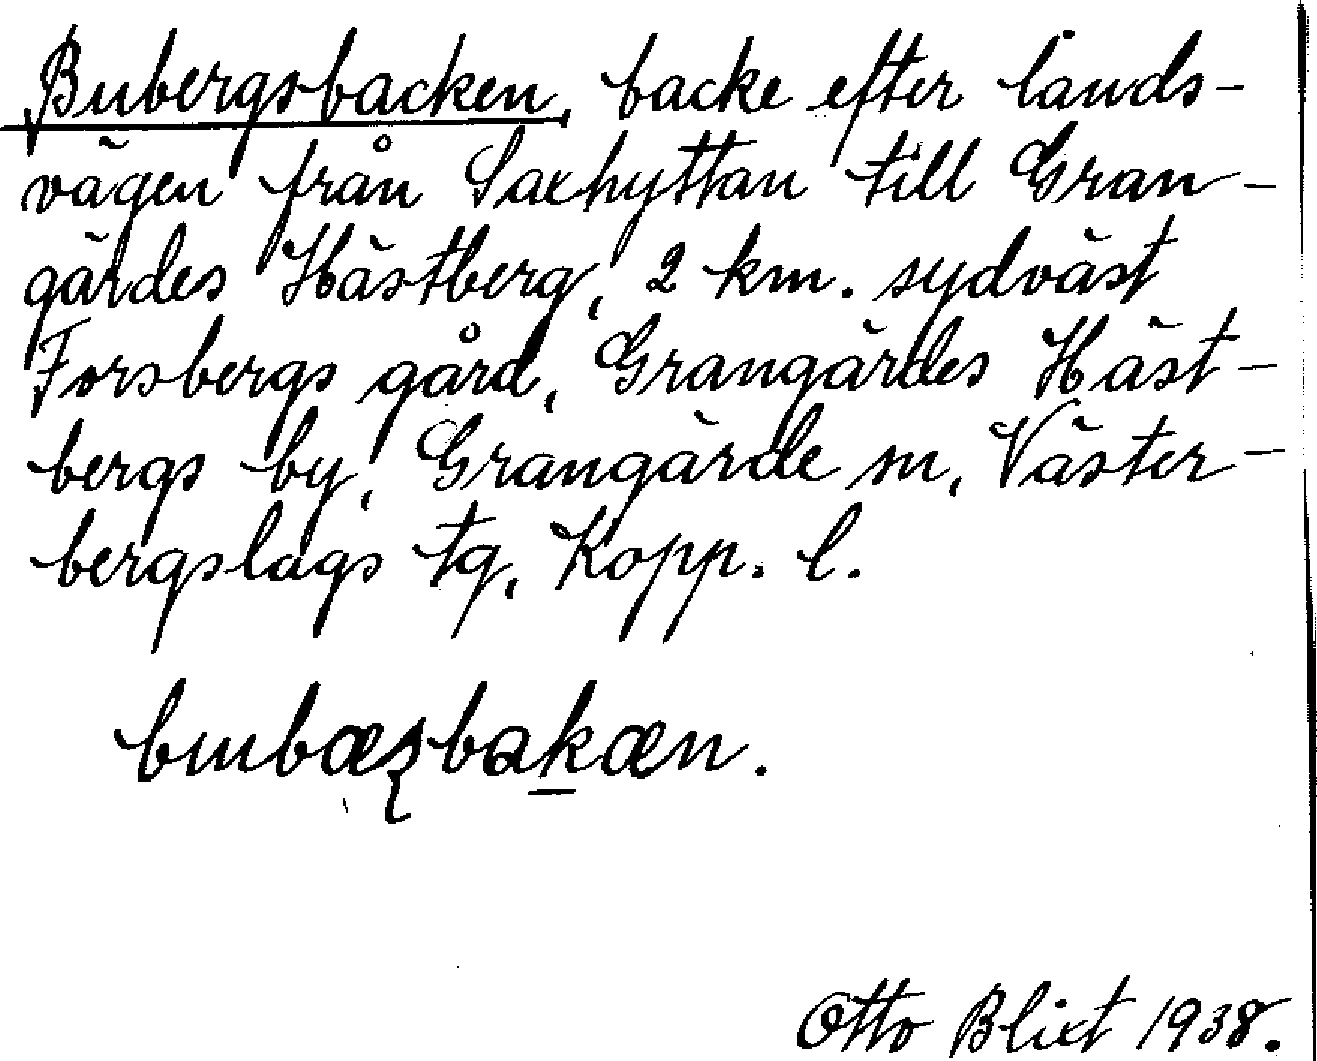 Bubergsbacken, backe efter lands-
vägen från Saxhyttan till Gran-
gärdes Hästberg, 2 km. sydväst
Forsbergs gård, Grangärdes Häst-
bergs by, Grangärde sn, Väster-
bergslags tg, Kopp. l.
bubæʂbakæn.
Otto Blixt 1938.